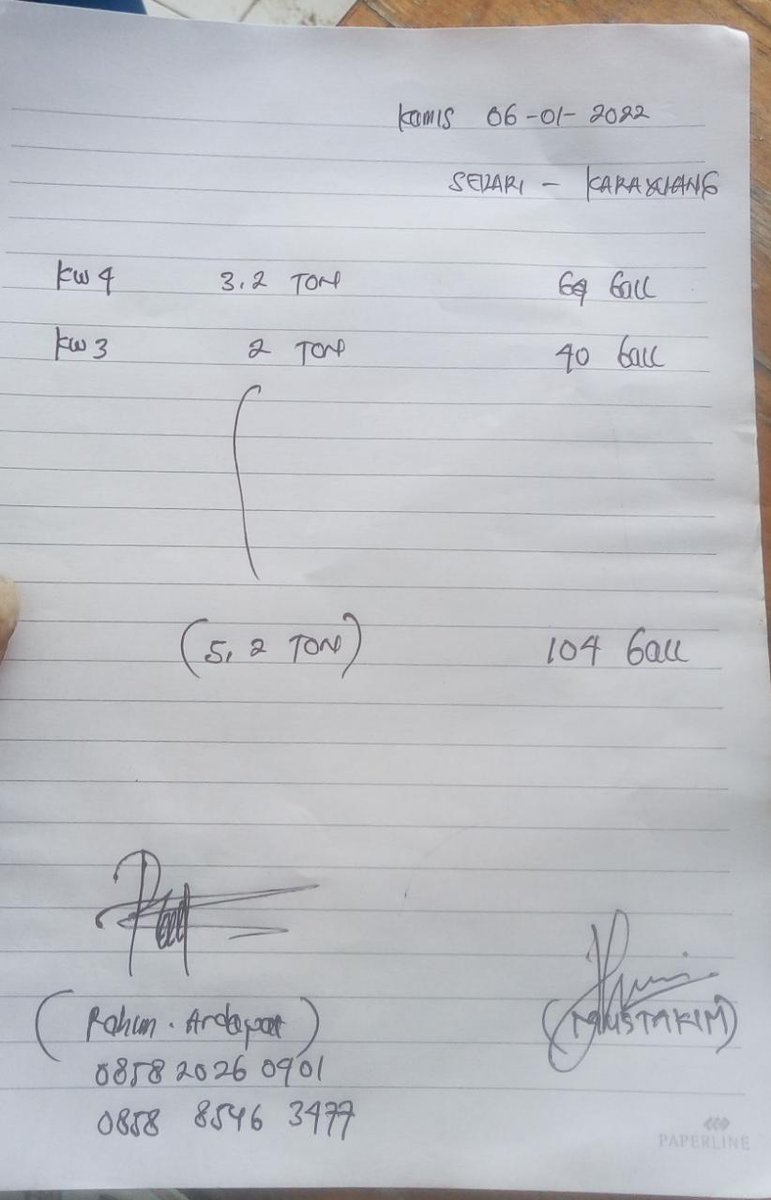 Kamis 06-01-2022
SEDARI - KARAWANG
KW 4 3.2 TON 64 ball
KW 3 2 TON 40 ball
(5,2 TON) 104 ball
(Rohim.)
(MUSTAKIM)
0858 2026 0901
0858 8546 3477
PAPERLINE